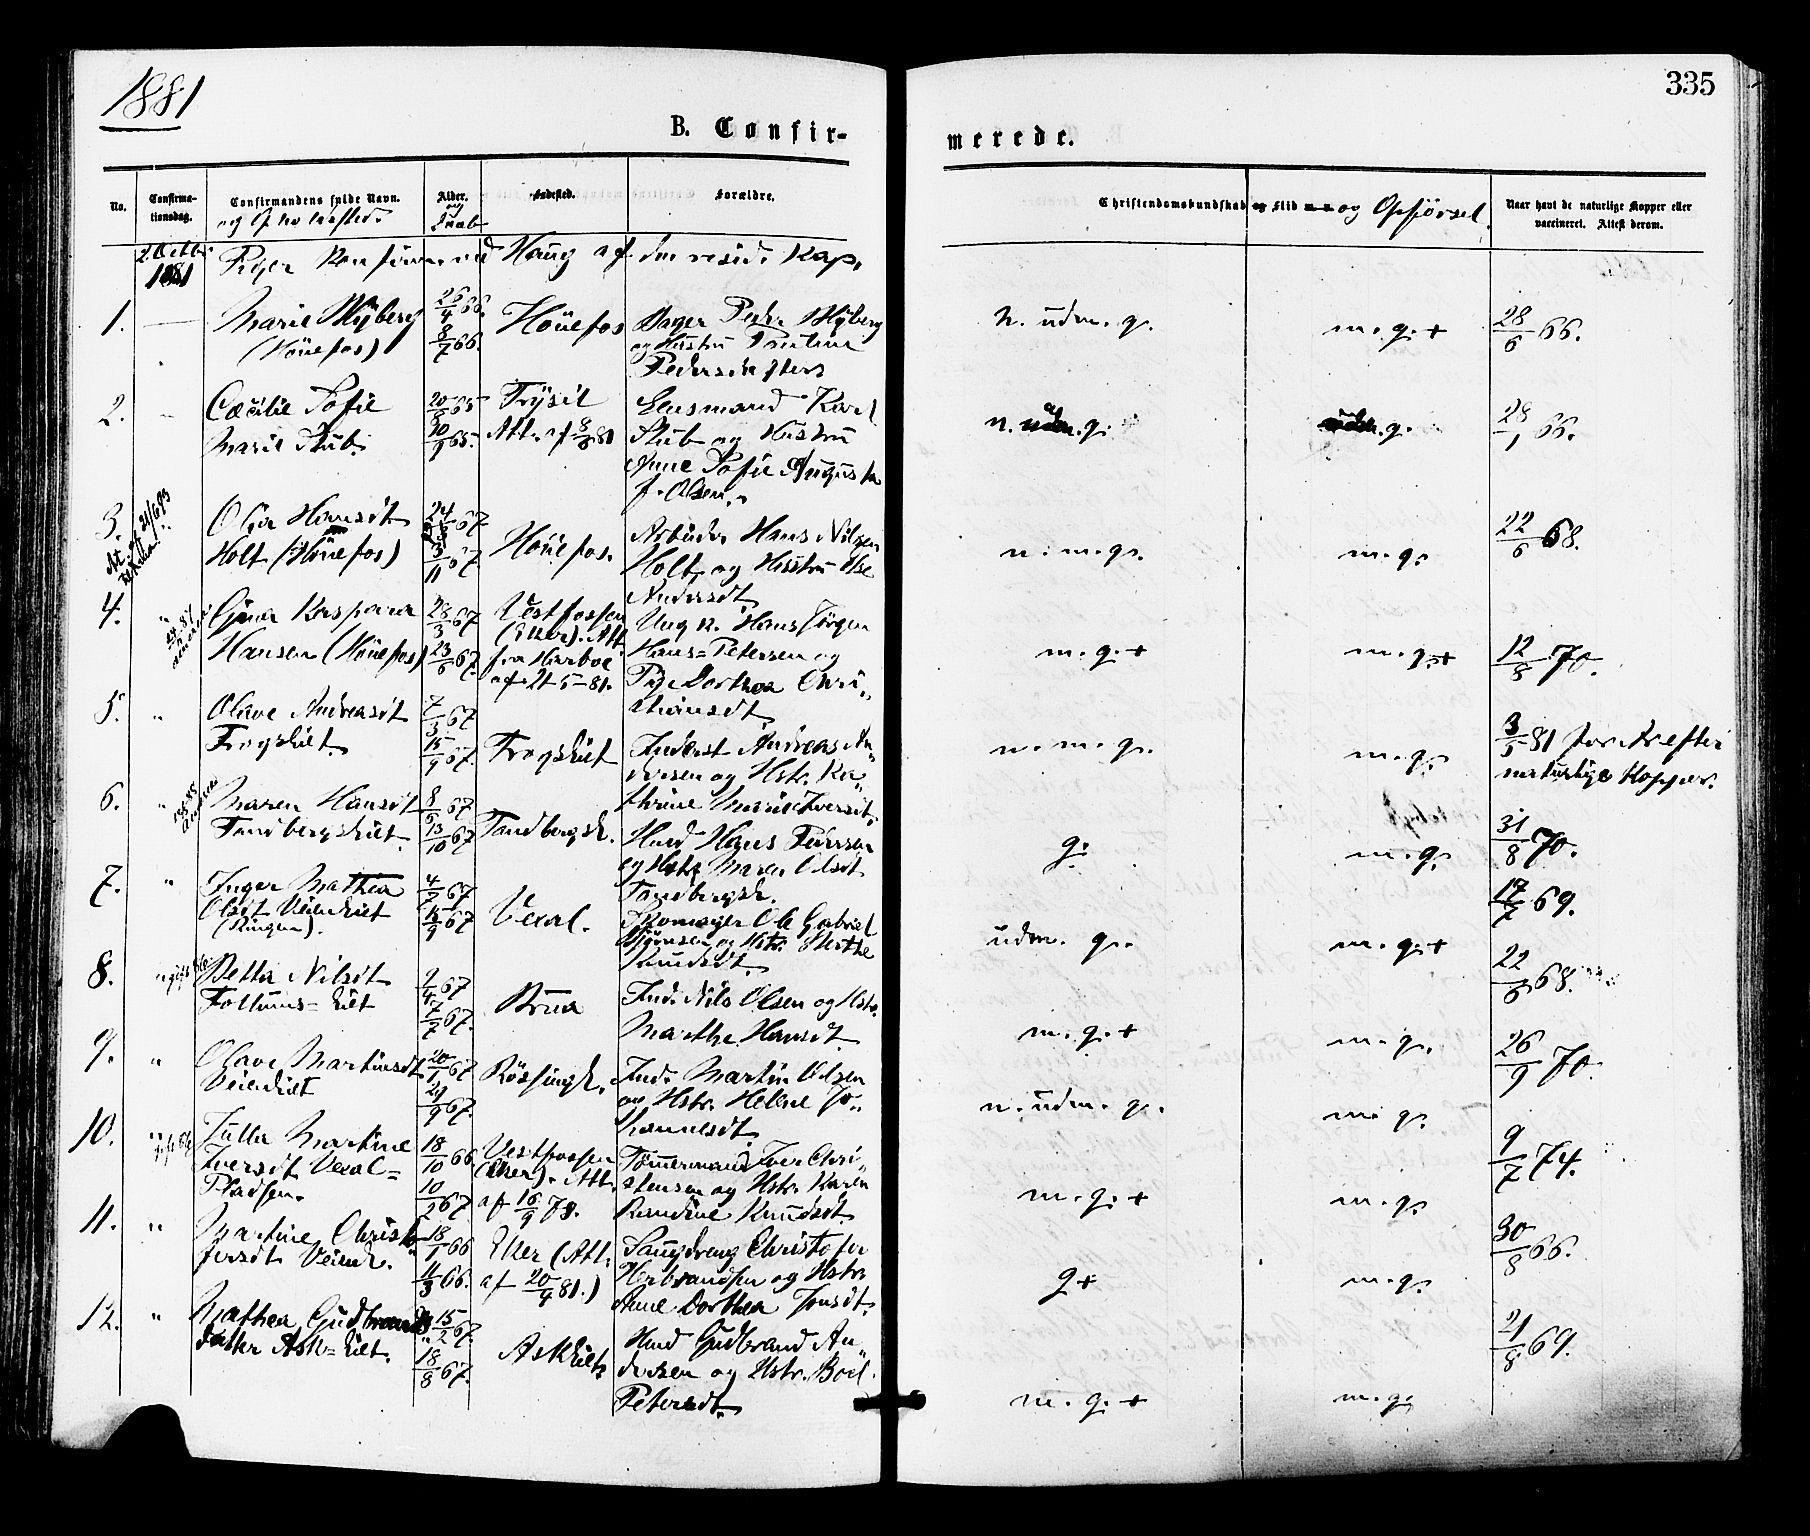 1881
335
B. Confir-
merede.
No.
Confirma-
tionsdag.
Confirmandens fulde Navn.
og Opholdssted.
Alder.
og
Daab
Fødested.
Forældre.
Christendomskundskab og Flid og Opførsel.
Naar havt de naturlige Kopper eller
vaccineret. Attest derom.
2. Octbr
1881
Piger Konfirmered Haug af den resid. Kap.
1.
Marie Myberg
(Hönefos)
26/4 66.
8/7 66.
Hönefos
Bager Peder Myberg
og Hustru Pauline
Pedersdatter
n. udm. g.
m. g. +
28/6 66.
2.
Cæcilie Sofie
Marie Stub.
20/8 65
10/9 65.
Trysil
Att. af 8/8 81
Lensmand Karl
Stub og Hustru
Anne Sofie Augusta
f. Olsen.
n. udm. g.
g.
28/1 66.
3.
Olia Hansdt.
Holt (Hönefos)
24/ 67
3/11 67.
Hönefos.
Arbeider Hans Nilsen
Holt og Hustru Else
Andersdt.
n. m. g.
m. g.
22/6 68.
4.
Gina Kaspara
Hansen (Hönefos)
28/3 67
23/6 67.
Vestfossen
(Eker). Att.
fra
af 21-5-81.
Ung K. Hans Jörgen
Hans-Petersen og
Pige Dorthea Chri„
stiansdt
m. g. +
m. g. +
12/8 70.
5.
„
Olave Andreasdt
Frogshiet.
7/3 67
15/9 67.
Frogshiet
Inderst Andreas An„
dersen og Hstr. Ka„
thrine Marie Iversdt.
n. m. g.
m. g.
3/5 81 for Ar efter
naturlige Kopper.
6.
„
Maren Hansdt
Tandbergshiet.
8/6 67
13/10 67
Tandbergsh.
Husd Hans Pedersen
og Hstr. Maren Olsdt
Tandbergsh.
g.
m. g.
31/8 70.
7.
„
Inger Mathea
Olsdt Veienhiet
4/2 67
15/9 67
Vexal.
Skomager Ole Gabriel
Björnsen og Hstr. Marthe
Knudsdt.
udm. g.
m. g. +
17/7 69.
8.
Betta Nilsdt
9/4 67
7/7 67.
Brua
Ind. Nils Olsen og Hstr.
Marthe Hansdt.
m. g. +
m. g.
22/6 68.
9.
„
Olave Martinsdt
Veienhiet
20/1 67
29/9 67.
Rössingh.
Ind. Martin Olsen
og Hstr. Helene Jo„
hannesdt.
n. udm. g.
m. g.
26/9 70.
10.
Julla Martine
Iversdt Vexal=
Pladsen.
18/10 66
10/2 67
Vestfossen
(Eker). Att.
af 16/9 78.
Tömmermand Iver Chri„
stensen og Hstr. Karen
Randine Knudsdt.
m. g. +
m. g.
9/7 74.
11.
„
Martine Christo„
fersdt Veienh.
18/1 66
11/3 66.
Eker (Att.
af 20/9 81.)
Saugdreng Christofer
Herbrandsen og Hstr.
Anne Dorthea Jonsdt.
g +
m. g.
30/8 66.
12.
„
Mathea Gudbrands„
datter Ask=hiet.
15/2 67.
18/8 67.
Askhiet
Husd Gudbrand An„
dersen og Hstr. Boel
Petersdt.
m. g. +
m. g.
21/8 69.